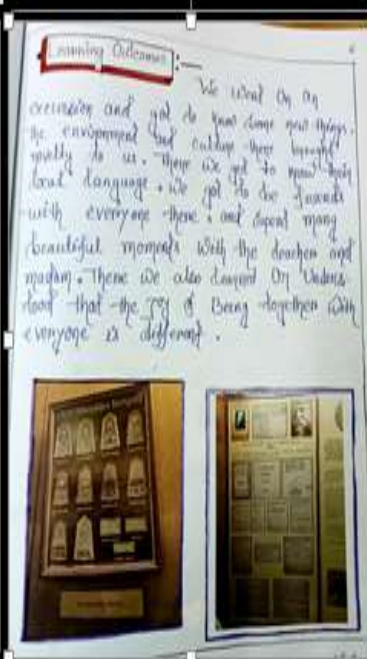 Learning Outcomes :—
We went on an
excursion and got to know some new things.
the environment and culture there brought
novelty to us. There we got to know their
local language. We got to be friends
with everyone there. and spent many
beautiful moments with the teacher and
madam. There we also learned or unders
tood that the joy of Being together with
everyone is different.